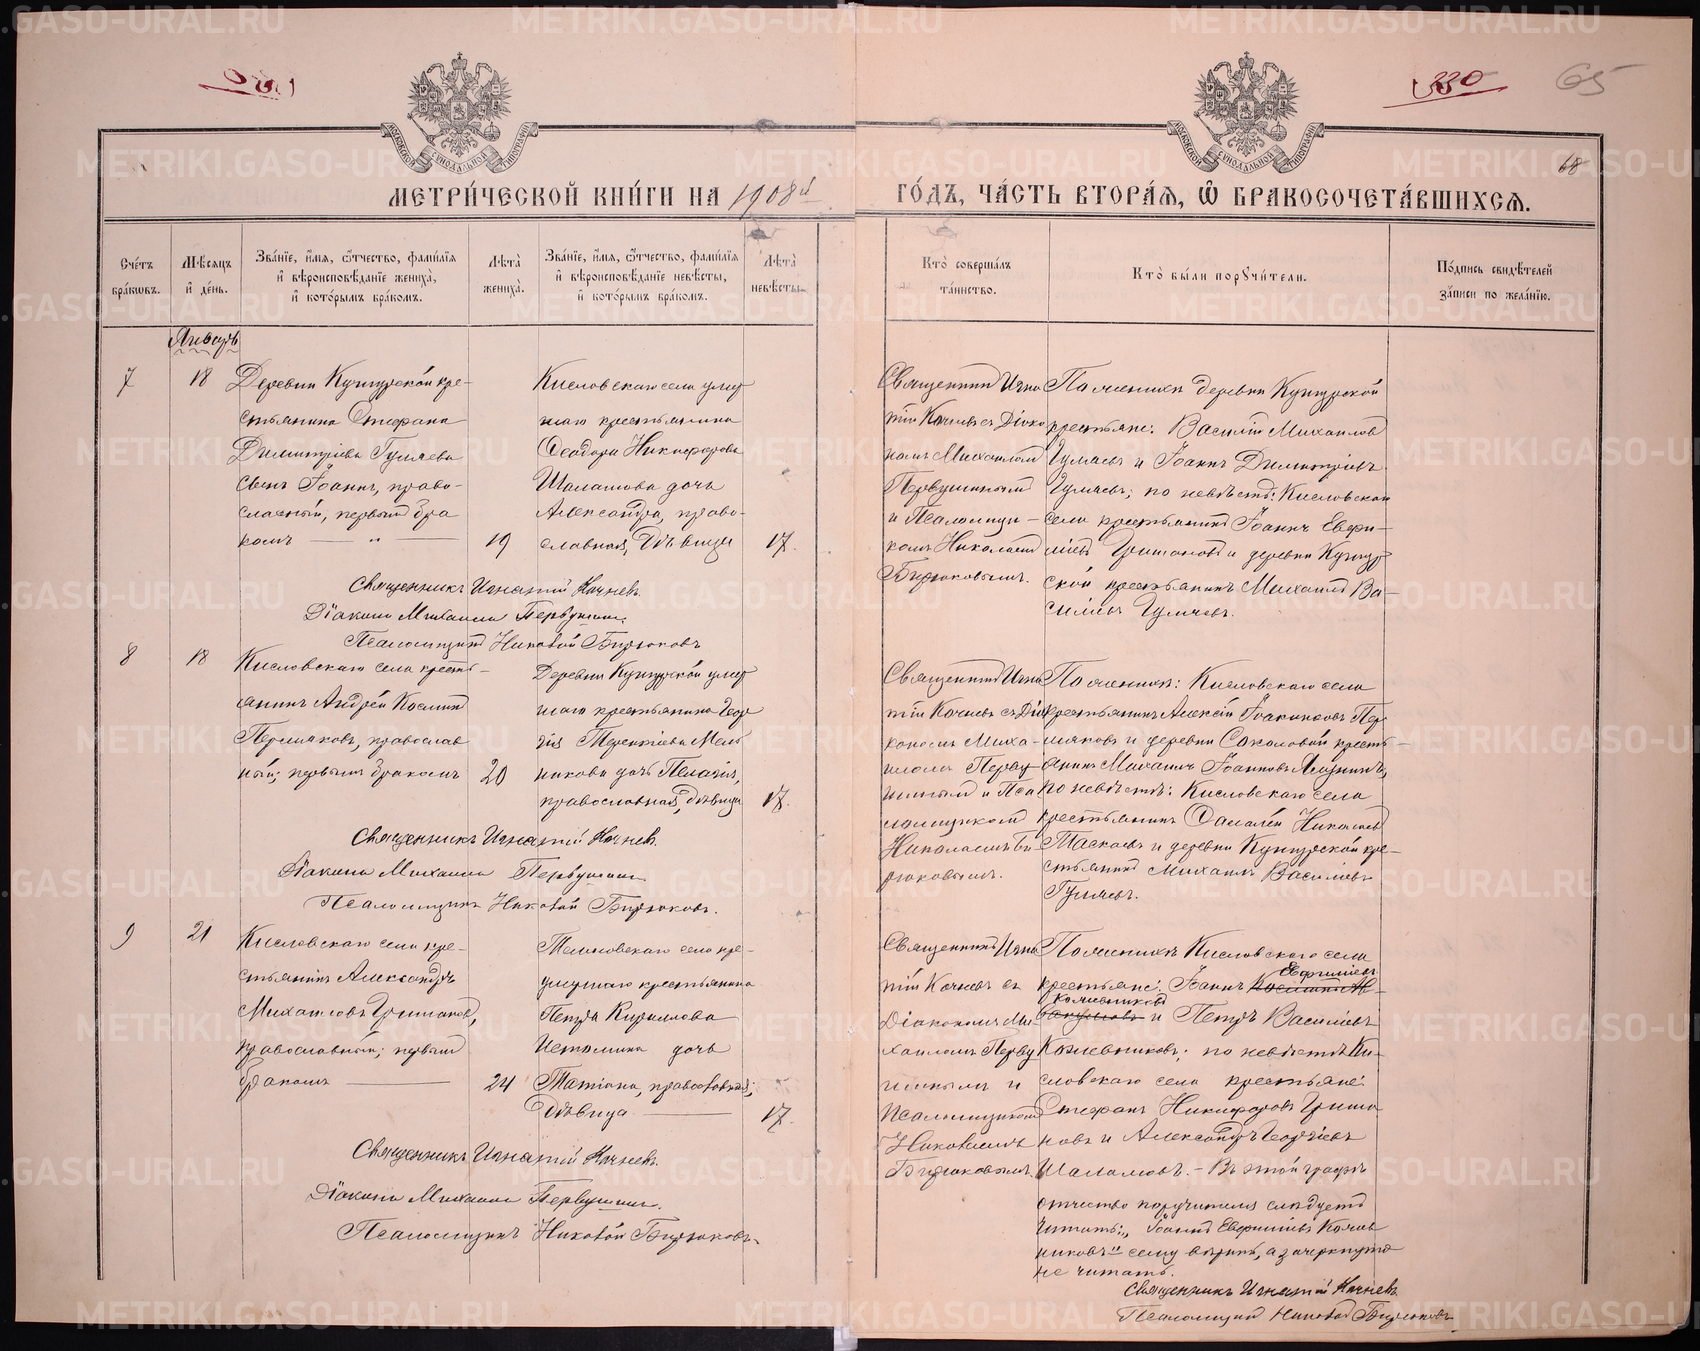 330
65
68
МОСКОВСКОЙ СѴНОДАЛЬНОЙ ТИПОГРАФІИ
МОСКОВСКОЙ СѴНОДАЛЬНОЙ ТИПОГРАФІИ
МЕТРИ́ЧЕСКОЙ КНИ́ГИ НА 1908й
ГО́ДЪ, ЧА́СТЬ ВТОРА́Ѧ, Ѽ БРАКОСОЧЕТА́ВШИХСѦ.
Сче́тъ бра́кѡвъ.
Мѣ́сѧцъ и҆ де́нь.
Зва́нїе, и҆́мѧ, ѻ҆́тчество, фами́лїѧ и҆ вѣроисповѣ́данїе жениха̀, и҆ кото́рымъ бра́комъ.
Лѣ̑та жениха̀.
Зва́нїе, и҆́мѧ, ѻ҆́тчество, фами́лїѧ и҆ вѣроисповѣ́данїе невѣ́сты, и҆ кото́рымъ бра́комъ.
Лѣ̑та невѣ́сты.
Кто̀ соверша́лъ та́инство.
Кто̀ бы́ли порꙋчи́тели.
По́дпись свидѣ́телей за́писи по жела́нїю.
Январь
7
18
Деревни Кунгурской кре-
стьянина Стефана
Димитріева Гуляева
сынъ Іоаннъ, право-
славный, первымъ бра
комъ — " —
19
Кисловскаго села умер
шаго крестьянина
Ѳеодора Никифорова
Шаламова дочь
Александра, право-
славная, дѣвица
17.
Священникъ Игна
тій Кочневъ съ Діако
номъ Михаиломъ
Первушинымъ
и Псаломщи-
комъ Николаемъ
Бирюковымъ.
По женихѣ деревни Кунгурской
крестьяне: Василій Михаиловъ
Гуляевъ и Іоаннъ Димитріевъ
Гуляевъ; по невѣстѣ: Кисловскаго
села крестьянинъ Іоаннъ Евфи-
міевъ Гришановъ и деревни Кунгур
ской крестьянинъ Михаилъ Ва-
сильевъ Гуляевъ.
Священникъ Игнатій Кочневъ.
Діаконъ Михаилъ Первушинъ.
Псаломщикъ Николай Бирюковъ
8
18
Кисловскаго села кресть-
янинъ Андрей Косминъ
Пермяковъ, православ
ный; первымъ бракомъ
20
Деревни Кунгурской умер
шаго крестьянина Геор
гія Терентіева Мель
никова дочь Пелагія,
православная, дѣвица
17.
Священникъ Игна
тій Кочневъ съ Діа
кономъ Миха-
иломъ Перву
шинымъ и Пса
ломщикомъ
Николаемъ Би
рюковымъ.
По женихѣ: Кисловскаго села
крестьянинъ Алексій Іоакимовъ Пер
мяковъ и деревни Соколовой кресть-
янинъ Михаилъ Іоанновъ
по невѣстѣ: Кисловскаго села
крестьянинъ Николаевъ
и деревни Кунгурской кре-
стьянинъ Михаилъ Васильевъ
Гуляевъ.
Священникъ Игнатій Кочневъ.
Діаконъ Михаилъ Первушинъ.
Псаломщикъ Николай Бирюковъ.
9
21
Кисловскаго села кре-
стьянинъ Александръ
Михаиловъ Гришановъ,
православный; первымъ
бракомъ —
24
кре-
умершаго крестьянина
Петра Кириллова
Истомина дочь
Татіана, православная;
дѣвица —
17.
Священникъ Игна
тій Кочневъ съ
Діакономъ Ми-
хаиломъ Перву
шинымъ и
псаломщикомъ
Николаемъ
Бирюковымъ.
По женихѣ Кисловскаго села
Евфиміевъ
крестьяне: Іоаннъ
Кожевниковъ
и Петръ Васильевъ
Кожевниковъ; по невѣстѣ Ки-
словскаго села крестьяне:
Стефанъ Никифоровъ Гриша
новъ и Александръ Георгіевъ
Шаламовъ. – Въ этой графѣ
отчество поручителя слѣдуетъ
читать: „Іоаннъ Евфиміевъ Кожев
никовъ" сему вѣрить, а зачеркнуто
не читать.
Священникъ Игнатій Кочневъ.
Псаломщикъ Николай Бирюковъ
Священникъ Игнатій Кочневъ.
Діаконъ Михаилъ Первушинъ.
Псаломщикъ Николай Бирюковъ.
METRIKI.GASO-URAL.RU